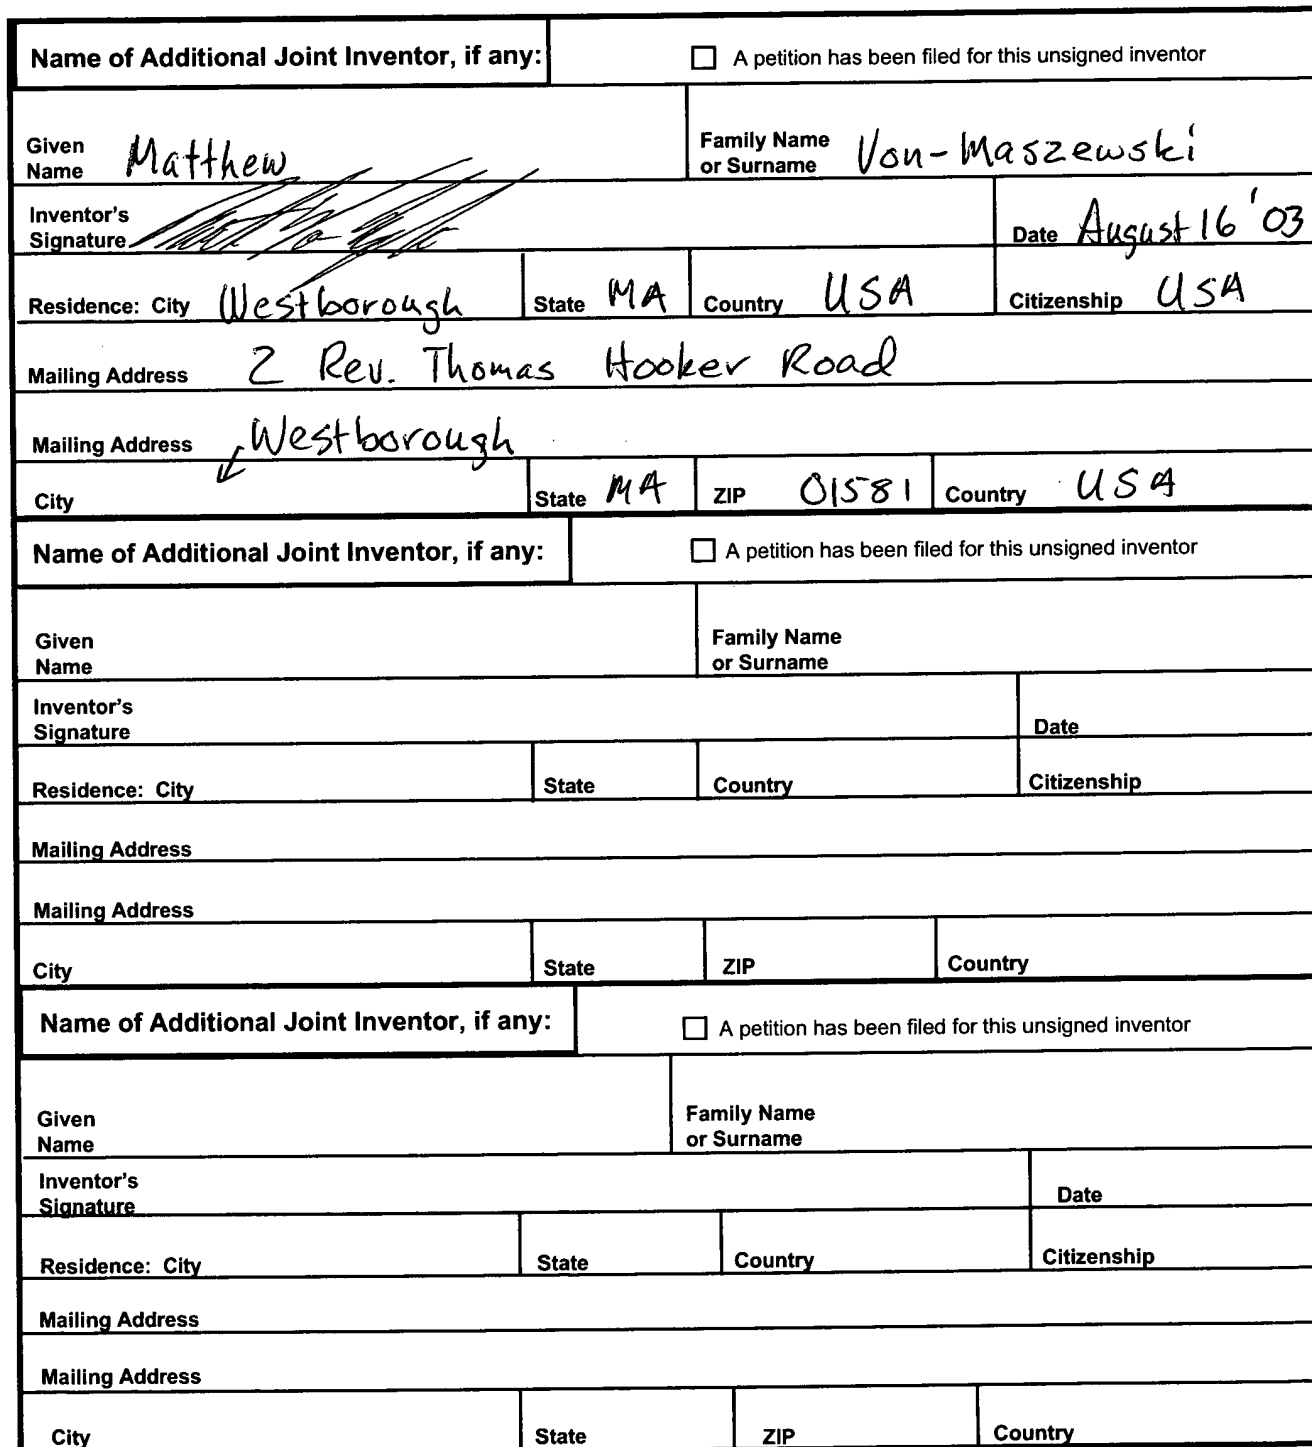 Name of Additional Joint Inventor, if any: A petition has been filed for this unsigned inventor
Given Name Matthew Family Name or Surname Von-Maszewski
Inventor's Signature Date August 16 '03
Residence: City Westborough State MA Country USA Citizenship USA
Mailing Address 2 Rev. Thomas Hooker Road
Mailing Address Westborough
City State MA ZIP 01581 Country USA
Name of Additional Joint Inventor, if any: A petition has been filed for this unsigned inventor
Given Name Family Name or Surname
Inventor's Signature Date
Residence: City State Country Citizenship
Mailing Address
Mailing Address
City State ZIP Country
Name of Additional Joint Inventor, if any: A petition has been filed for this unsigned inventor
Given Name Family Name or Surname
Inventor's Signature Date
Residence: City State Country Citizenship
Mailing Address
Mailing Address
City State ZIP Country